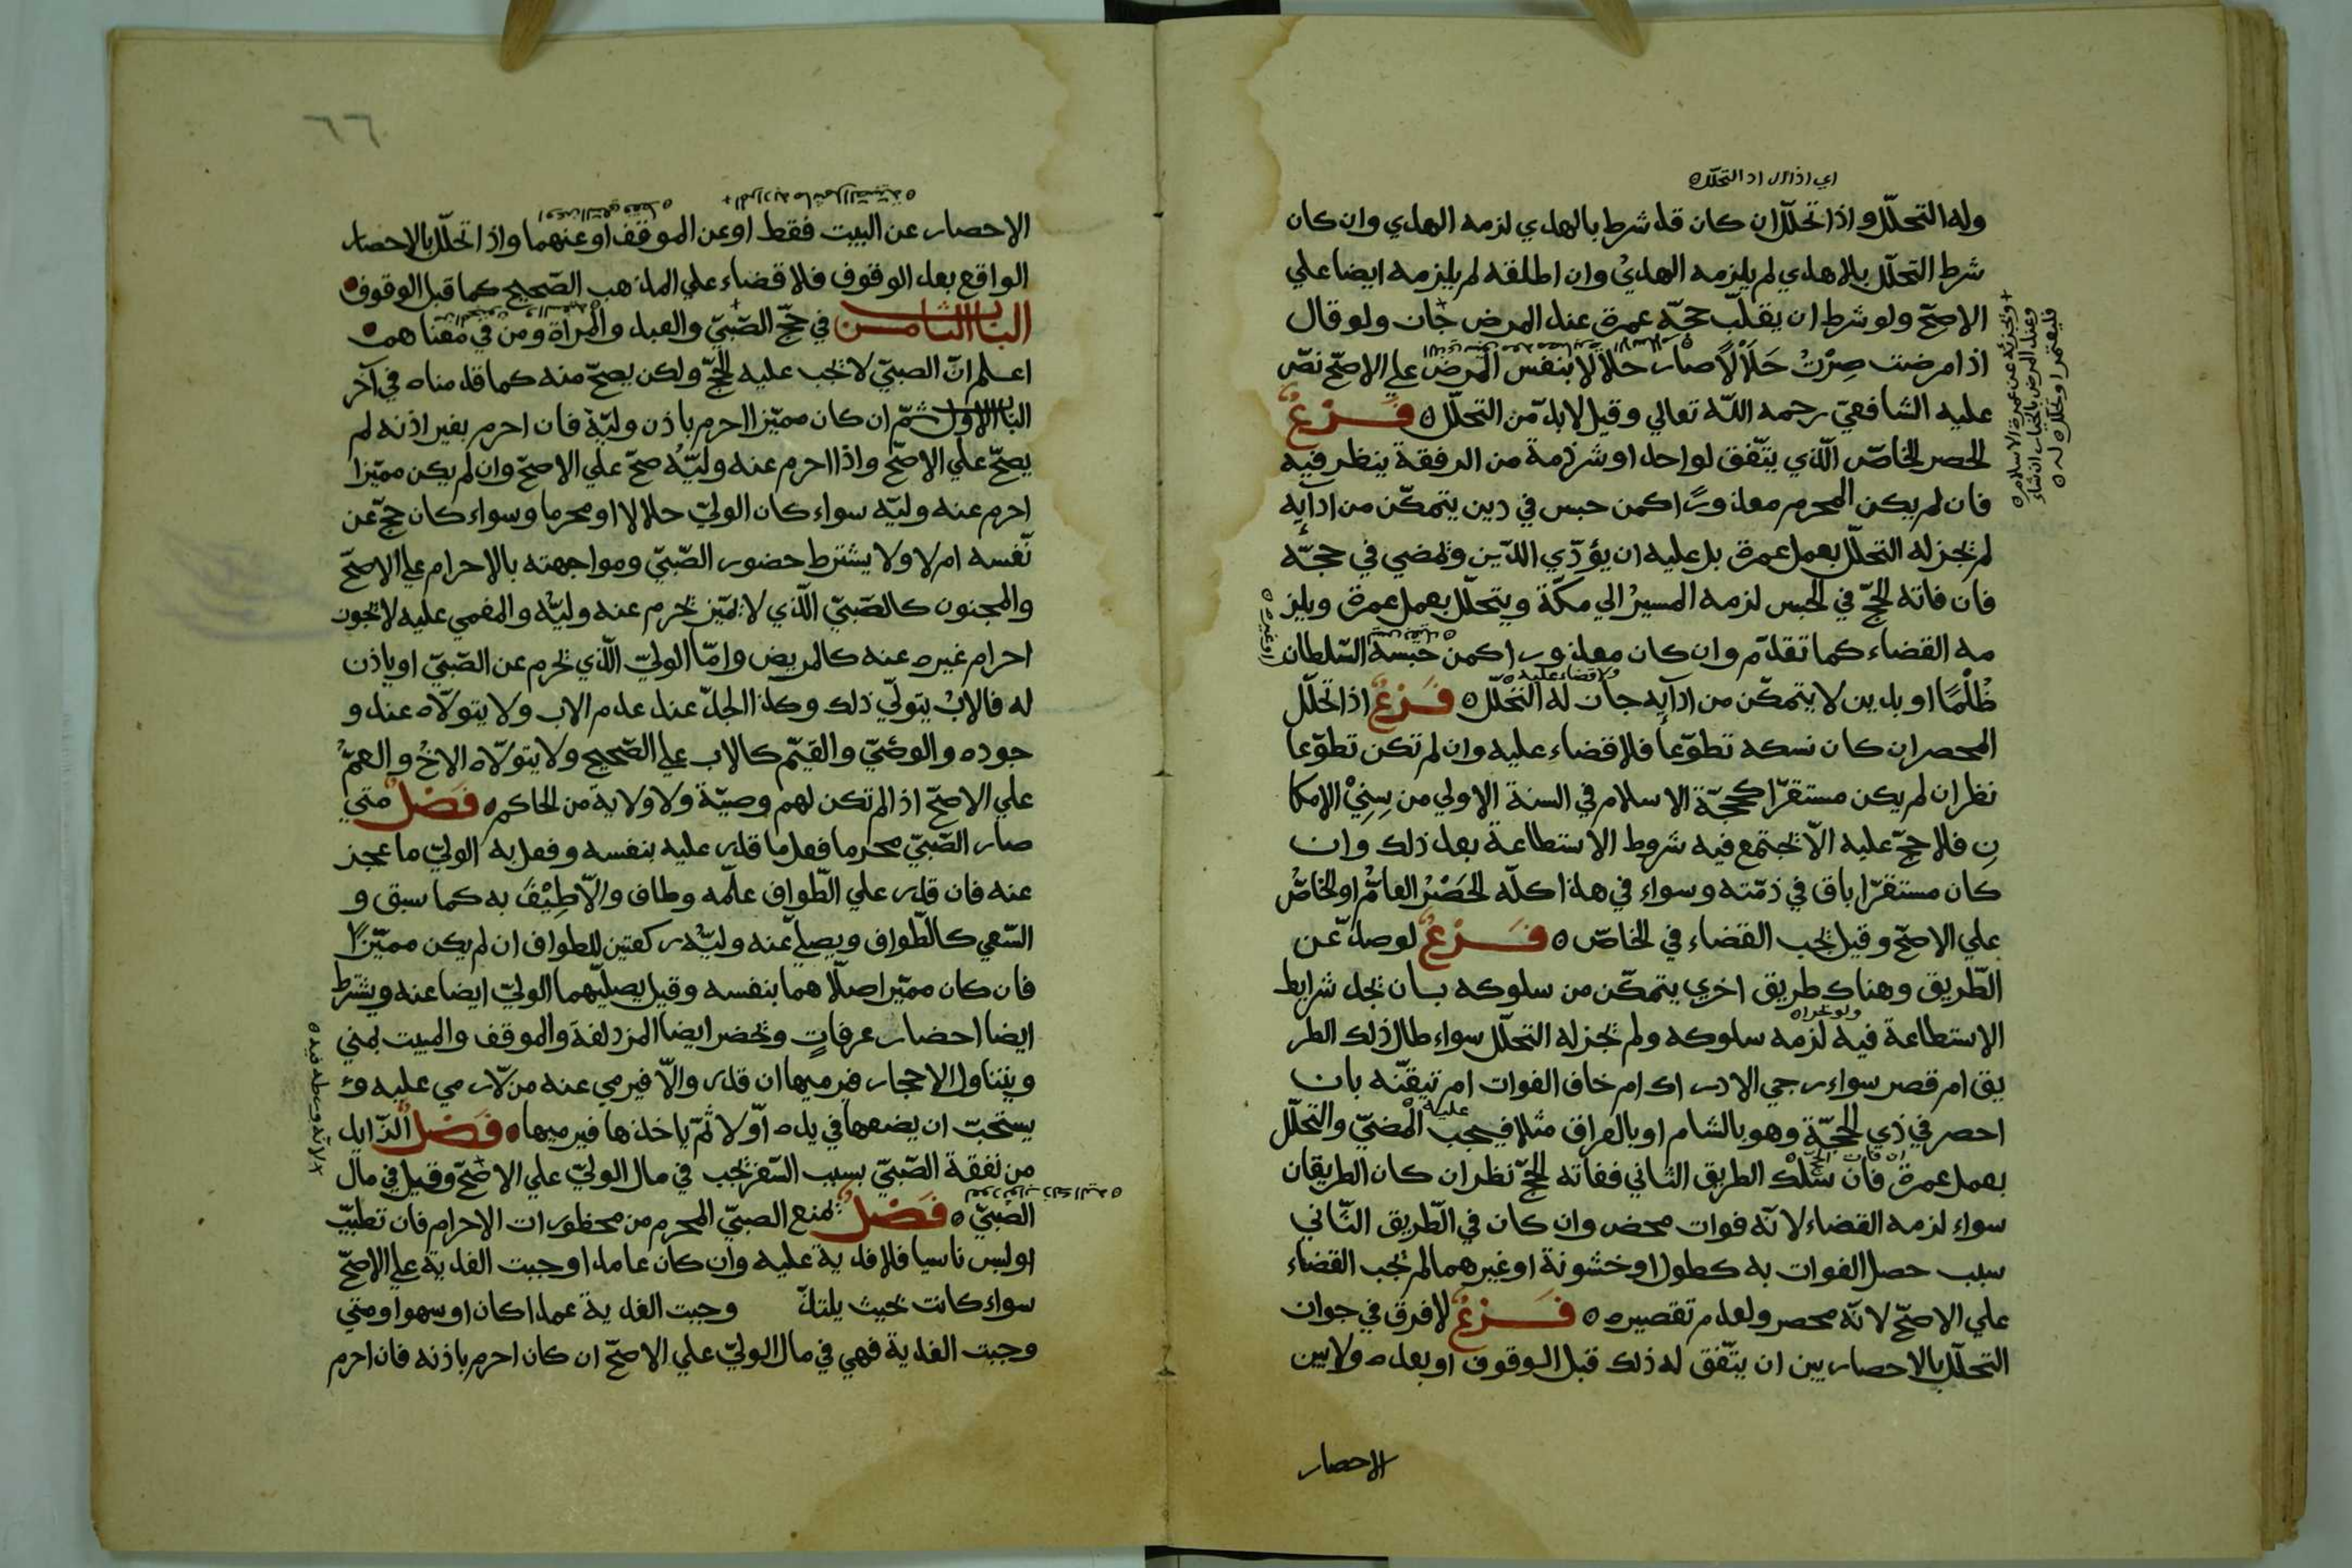 اي اذا اراد التحلّل ه
وله التحلّل واذا تحلّل ان كان قد شرط بالهدي لزمه الهدي وان كان
شرط التحلّل بلا هدي لم يلزمه الهديُ وان اطلقه لم يلزمه ايضا علي
الاصحّ ولو شرط ان يقلّب حجّه عمرة عند المرض جاز ولو قال
اذا مرضت صِرْتُ حَلَالًا صار حلالا بنفس المرض علي الاصحّ نصّ
عليه الشافعيّ رحمه اللّه تعالي وقيل لا بدّ من التحلّل ه فَرْعٌ
الحصر الخاصّ الّذي يتّفق لواحد او شرذمة من الرفقة ينظر فيه
فان لم يكن المحرم معذورًا كمن حبس في دين يتمكّن من ادآيه
لم يجز له التحلّل بعمل عمرة بل عليه ان يؤدّي الدّين ويمضي في حجّه
فان فاته الحجّ في الحبس لزمه المسيرُ الي مكّة ويتحلّل بعمل عمرة ويلز
مه القضاء كما تقدّم وان كان معذورا كمن حبسه السّلطان
ظُلْمًا او بدين لا يتمكّن من ادآيه جاز له التحلّل ه فَرْعٌ اذا تحلّل
ولا قضاء عليه ه
المحصر ان كان نسكه تطوّعا فلا قضاء عليه وان لم تكن تطوّعا
نظر ان لم يكن مستقرّا كحجّة الاسلام في السنة الاولي من سِنِيْ الامكا
نِ فلا حجّ عليه الّا تجتمع فيه شروط الاستطاعة بعد ذلك وان
كان مستقرّا باق في ذمّته وسواء في هذا كلّه الحَصْرُ العامُّ او الخاصُّ
علي الاصحّ وقيل يجب القضاء في الخاصّ ه فَرْعٌ لو صدّ عن
الطّريق وهناك طريق اخري يتمكّن من سلوكه بان يجد شرايط
الاستطاعة فيه لزمه سلوكه ولم يجز له التحلّل سواء طال ذلك الطر
يق ام قصر سواء رجي الادراك ام خاف الفوات ام تيقّنه بان
احصر في ذي الحجّة وهو بالشام او بالعراق مثلا فيجب عليه المضيّ والتحلّل
بعمل عمرة فان سلك الطريق الثاني ففاته الحجّ نظر ان كان الطريقان
سواء لزمه القضاء لانّه فوات محض وان كان في الطّريق الثّاني
سبب حصل الفوات به كطول او خشونة او غيرهما لم يجب القضاء
علي الاصحّ لانّه محصر ولعدم تقصيره ه فَرْعٌ لا فرق في جواز
التحلّل بالاحصار بين ان يتّفق له ذلك قبل الوقوف او بعده ولا بين
الاحصار
٦٦
الاحصار عن البيت فقط او عن الموقف او عنهما واذا تحلّل بالاحصار
الواقع بعد الوقوف فلا قضاء علي المذهب الصّحيح كما قبل الوقوف
الباب الثامن في حجّ الصّبيّ والعبد والمرأة ومن في معناهم
اعلم انّ الصبيّ لا يجب عليه الحجّ ولكن يصحّ منه كما قدمناه في آخر
الباب الاول ثمّ ان كان مميّزا احرم باذن وليّه فان احرم بغير اذنه لم
يصحّ علي الاصحّ واذا احرم عنه وليّه صحّ علي الاصحّ وان لم يكن مميّزا
احرم عنه وليّه سواء كان الوليّ حلالا او محرما وسواء كان حجّ عن
نفسه ام لا ولا يشترط حضور الصّبيّ ومواجهته بالاحرام علي الاصحّ
والمجنون كالصّبيّ الّذي لا يميّز يحرم عنه وليّه والمغمي عليه لا يجوز
احرام غيره عنه كالمريض وامّا الوليّ الّذي يحرم عن الصّبيّ او ياذن
له فالابُ يتولّي ذلك وكذا الجدّ عند عدم الاب ولا يتولّاه عند و
جوده والوصيّ والقيّم كالاب علي الصّحيح ولا يتولّاه الاخُ والعمّ
علي الاصحّ اذا لم تكن لهم وصيّة ولا ولاية من الحاكم ه فَصْلٌ متي
صار الصّبيّ محرما فعل ما قدر عليه بنفسه وفعل به الوليّ ما عجز
عنه فان قدر علي الطّواف علّمه وطاف والّا طِيْفَ به كما سبق و
السّعي كالطّواف ويصلّي عنه وليّه ركعتين للطواف ان لم يكن مميّزًا
فان كان مميّزا صلّاهما بنفسه وقيل يصلّيهما الوليّ ايضا عنه ويشترط
ايضا احضار عرفاتٍ ويحضر ايضا المزدلفة والموقف والمبيت بمني
ويتناول الاحجار فيرميها ان قدر والّا فيرمي عنه من لا رمي عليه و
يستحبّ ان يضعها في يده اوّلا ثمّ ياخذها فيرميها ه فَصْلٌ الزّايد
لانّه ورطه فيه ه
من نفقة الصّبيّ بسبب السّفر يجب في مال الوليّ علي الاصحّ وقيل في مال
الصّبيّ ه فَصْلٌ يمنع الصبيّ المحرم من محظورات الاحرام فان تطيّب
او لبس ناسيا فلا فدية عليه وان كان عامدا وجبت الفدية علي الاصحّ
سواء كانت بحيث يلتذّ وجبت الفدية عمدا كان او سهوا ومتي
وجبت الفدية فهي في مال الوليّ علي الاصحّ ان كان احرم باذنه فان احرم